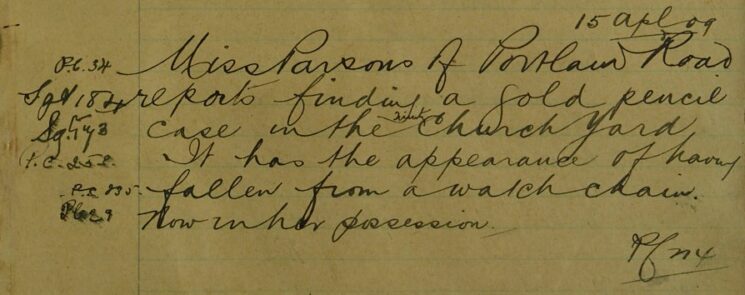 15 Apl 09
P.C. 34 Miss Parsons of Portland Road
Sgt 184 reports finding a gold pencil
Sgt case in the Church Yard
P.C. 252 It has the appearance of having
P.C. 235 fallen from a watch chain.
Now in her possession.